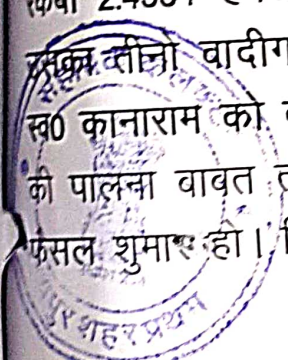 रकबा 2.4
उसका तीनो वादीग
स्व0 कानाराम को
की पालना बावत
फैसल शुमार हो।
शहर प्रथम